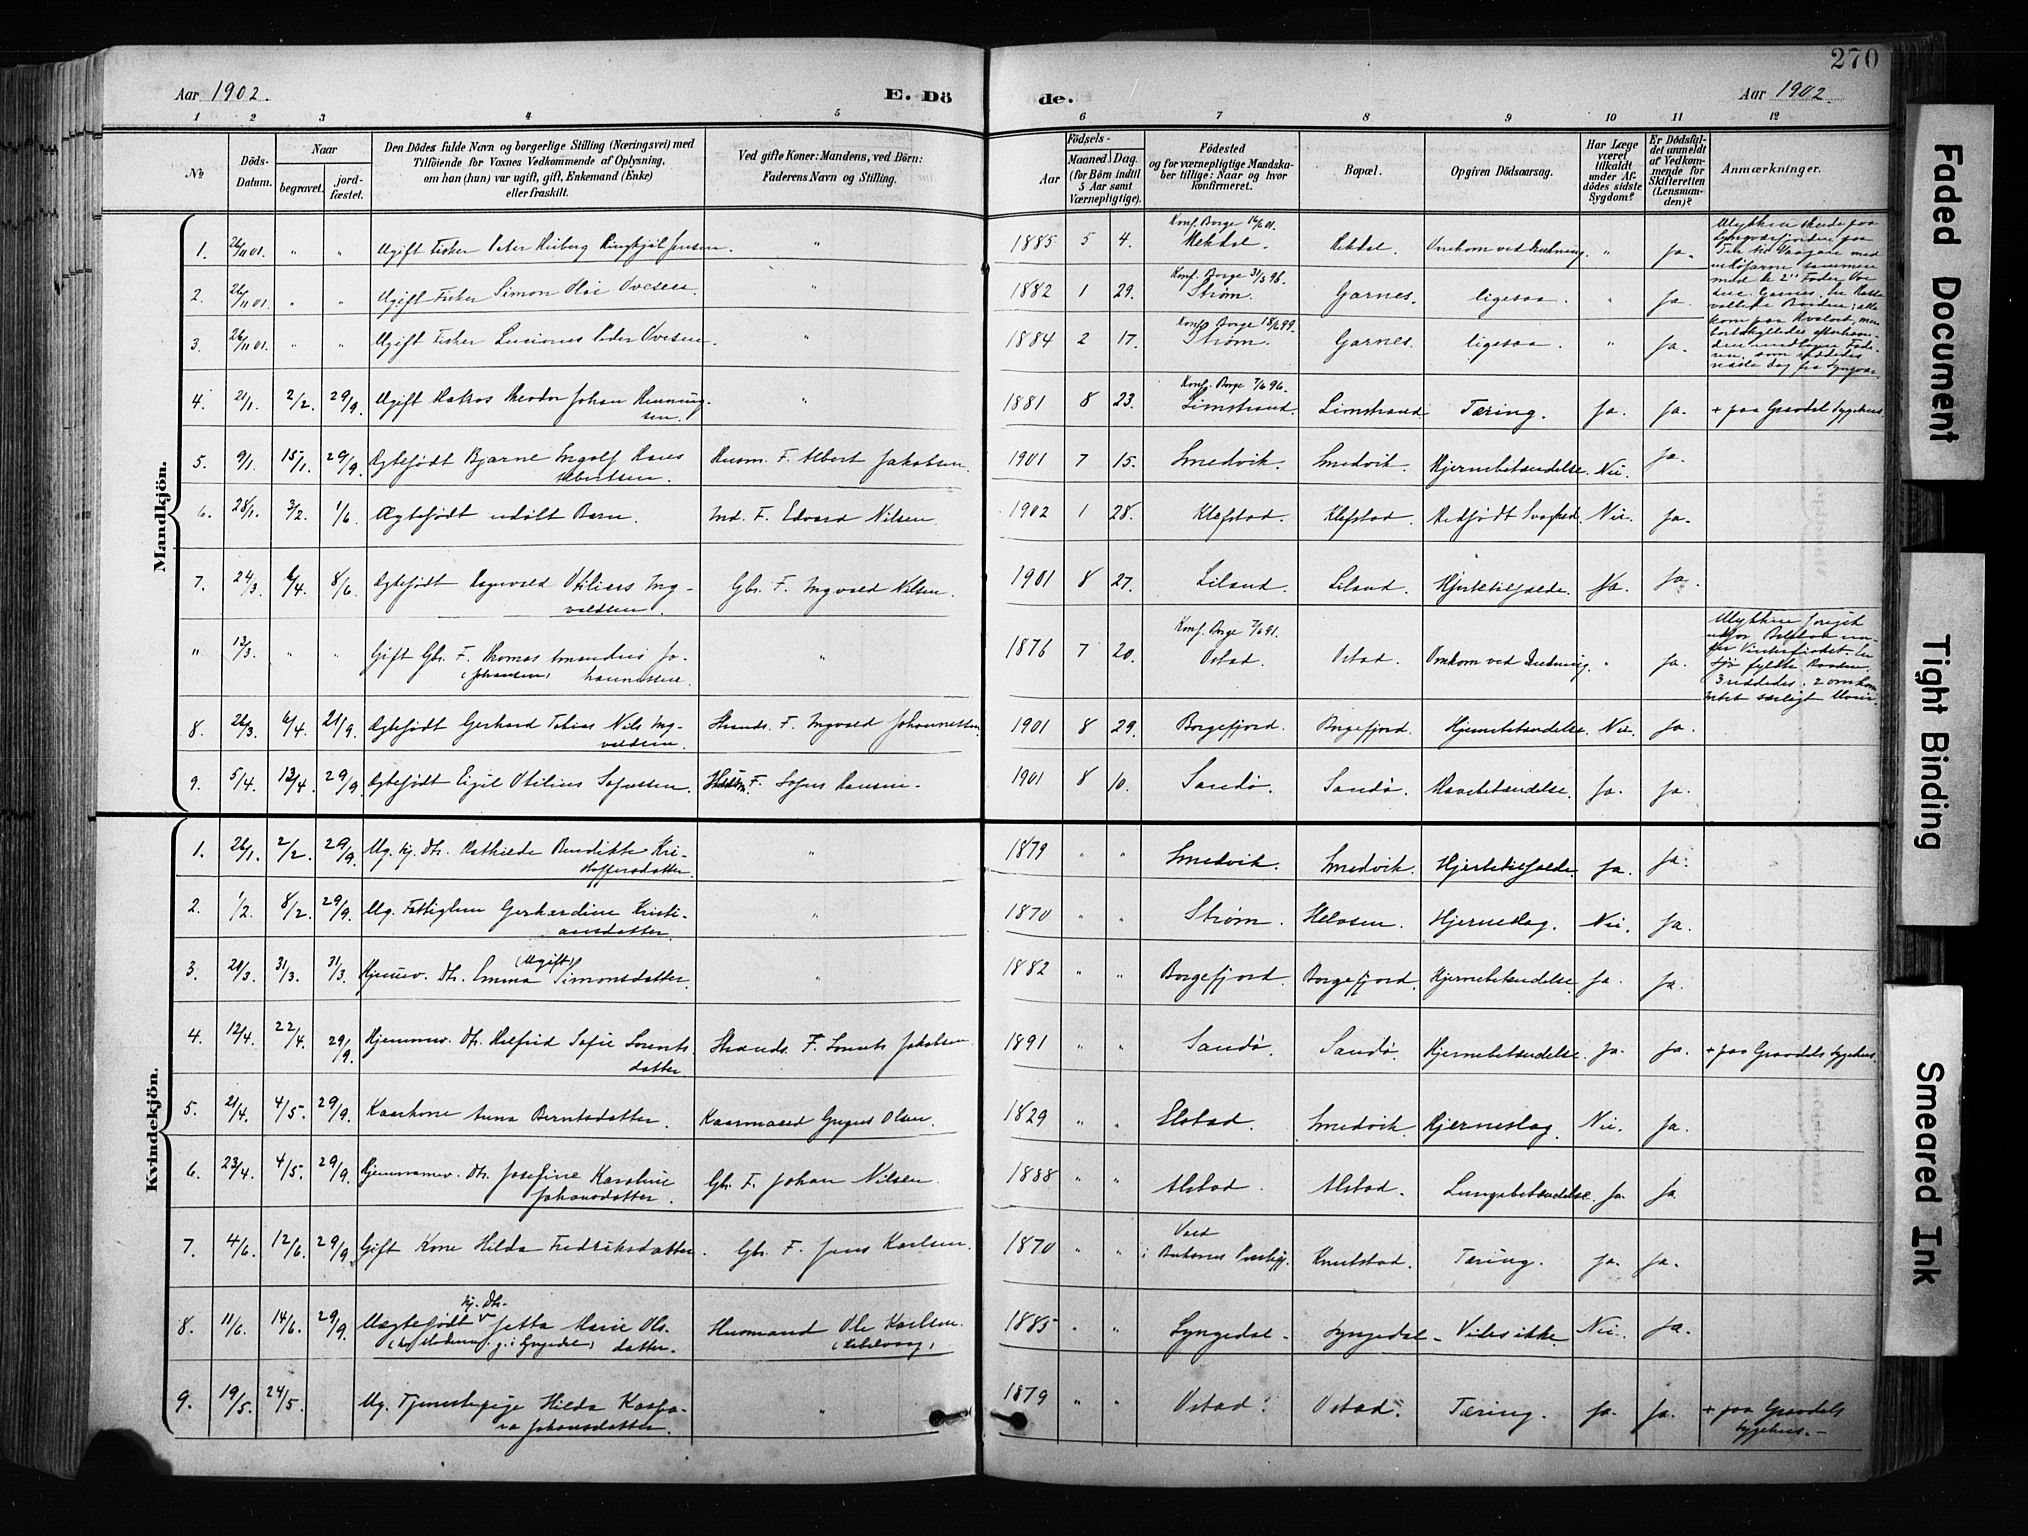 270
Aar 1902.
E. Dö
de.
Aar 1902.
1 2 3 4 5 6 7 8 9 10 11 12
No
Döds-Datum.
Naar
begravet.
jord-fæstet.
Den Dödes fulde Navn og borgerlige Stilling (Næringsvei) med
Tilföiende for Voxnes Vedkommende af Oplysning,
om han (hun) var ugift, gift, Enkemand (Enke)
eller fraskilt.
Ved gifte Koner: Mandens, ved Börn:
Faderens Navn og Stilling.
Födsels-
Aar
Maaned. Dag.
(for Börn indtil
5 Aar samt
Værnepligtige).
Födested
og for værnepligtige Mandska-
ber tillige: Naar og hvor
konfirmeret.
Bopæl.
Opgiven Dödsaarsag.
Har Læge
været
tilkaldt
under Af-
dödes sidste
Sygdom?
Er Dödsfal-
det anmeldt
af Vedkom-
mende for
Skifteretten
(Lensman-
den)?
Anmærkninger.
Mandkjön.
1. 26/11 01. " " Ugift Fisker Peter Heiberg Jensen. " 1885 5 4. Konf. Borge 16/6 01. Mekdal. Omkom ved Drukning. " Ja.
2. 26/11 01. " " Ugift Fisker Simon Ovesen. " 1882 1 29. Konf. Borge 31/5 96. Strøm. Garnes. ligesaa. " Ja.
3. 26/11 01. " " Ugift Fisker Peder Ovesen. " 1884 2 17. Konf. Borge 18/6 99. Strøm. Garnes. ligesaa. " Ja.
4. 21/1. 2/2. 29/9. Ugift Matros Theodor Johan Henning-
sen. " 1881 8 23. Konf. Borge 7/6 96. Limstrand. Limstrand. Tæring. Ja. Ja. + paa Gravdal Sygehus.
5. 9/1. 15/1. 29/9. Ægtefødt Bjarne Ingolf Hans
Albertsen. Husm. F. Albert Jakobsen. 1901 7 15. Smedvik. Smedvik. Hjernebetændelse. Nei. Ja.
6. 28/1. 3/2. 1/6. Ægtefødt udøbt Barn. Ind. F. Edvard Nilsen. 1902 1 28. Klefstad. Klefstad. Medfødt Svaghed. Nei. Ja.
7. 24/3. 6/4. 8/6. Ægtefødt Ragnvald Otilius Ing-
valdsen. Gbr. F. Ingvald Nilsen. 1901 8 27. Liland. Liland. Hjertetilfælde. Ja. Ja.
" 13/3. " " Gift Gbr. F. Thomas Amandus Jo-
(Johansen) hannessen. " 1876 7 20. Konf. Borge 7/6 91. Ostad. Ostad. Omkom ved Drukning. " Ja.
8. 26/3. 6/4. 21/9. Ægtefødt Gerhard Tobias Nils Ing-
valdsen. Strands. F. Ingvald Johannessen. 1901 8 29. Borgefjord. Borgefjord. Hjernebetændelse. Nei. Ja.
9. 5/4. 13/4. 29/9. Ægtefødt Eigil Otilius Sofussen. F. Sofus Hansen. 1901 8 10. Sandø. Sandø. Mavebetændelse. Ja. Ja.
Kvindekjön.
1. 26/1. 2/2. 29/9. Ug. hj. Dtr. Mathilde Benedikte Kri-
stoffersdatter. " 1879 " " Smedvik. Smedvik. Hjertetilfælde. Ja. Ja.
2. 1/2. 8/2. 29/9. Ug. Fattiglem Gerhardine Kristi-
ansdatter. " 1870 " " Strøm. Helosen. Hjerneslag. Nei. Ja.
3. 21/3. 31/3. 31/3. Hjemmev. Dtr. Emma (Ugift) Simonsdatter. " 1882 " " Borgefjord. Borgefjord. Hjernebetændelse. Ja. Ja.
4. 12/4. 22/4. 29/9. Hjemmev. Dtr. Helfrid Sofie Lorents-
datter. Strands. F. Lorents Jakobsen. 1891 " " Sandø. Sandø. Hjernebetændelse. Ja. Ja. + paa Gravdals Sygehus.
5. 21/4. 4/5. 29/9. Kaarkone Anna Berntsdatter. Kaarmand Olsen. 1829 " " Elstad. Smedvik. Hjerneslag. Nei. Ja.
6. 23/4. 4/5. 29/9. Hjemmev. Dtr. Josefine Karoline
Johansdatter. Gbr. F. Johan Nilsen. 1888 " " Alstad. Alstad. Lungebetændelse. Ja. Ja.
7. 4/6. 12/6. 29/9. Gift Kone Hilda Fredriksdatter. Gbr. F. Jens Karlsen. 1870 " " i Buksnes Præstegj. Knutstad. Tæring. Ja. Ja.
8. 11/6. 14/6. 29/9. Uægtefødt hj. Dtr. Jetta Marie Ols-
datter. Husmand Ole Karlsen. 1885 " " Lyngedal. Lyngedal. Vides ikke. Nei. Ja.
9. 19/5. 24/5. Ug. Tjenestepige Hilda Kaspa-
ra Johansdatter. " 1879 " " Ostad. Ostad. Tæring. Ja. Ja. + paa Gravdals
Sygehus.
Faded Document
Tight Binding
Smeared Ink